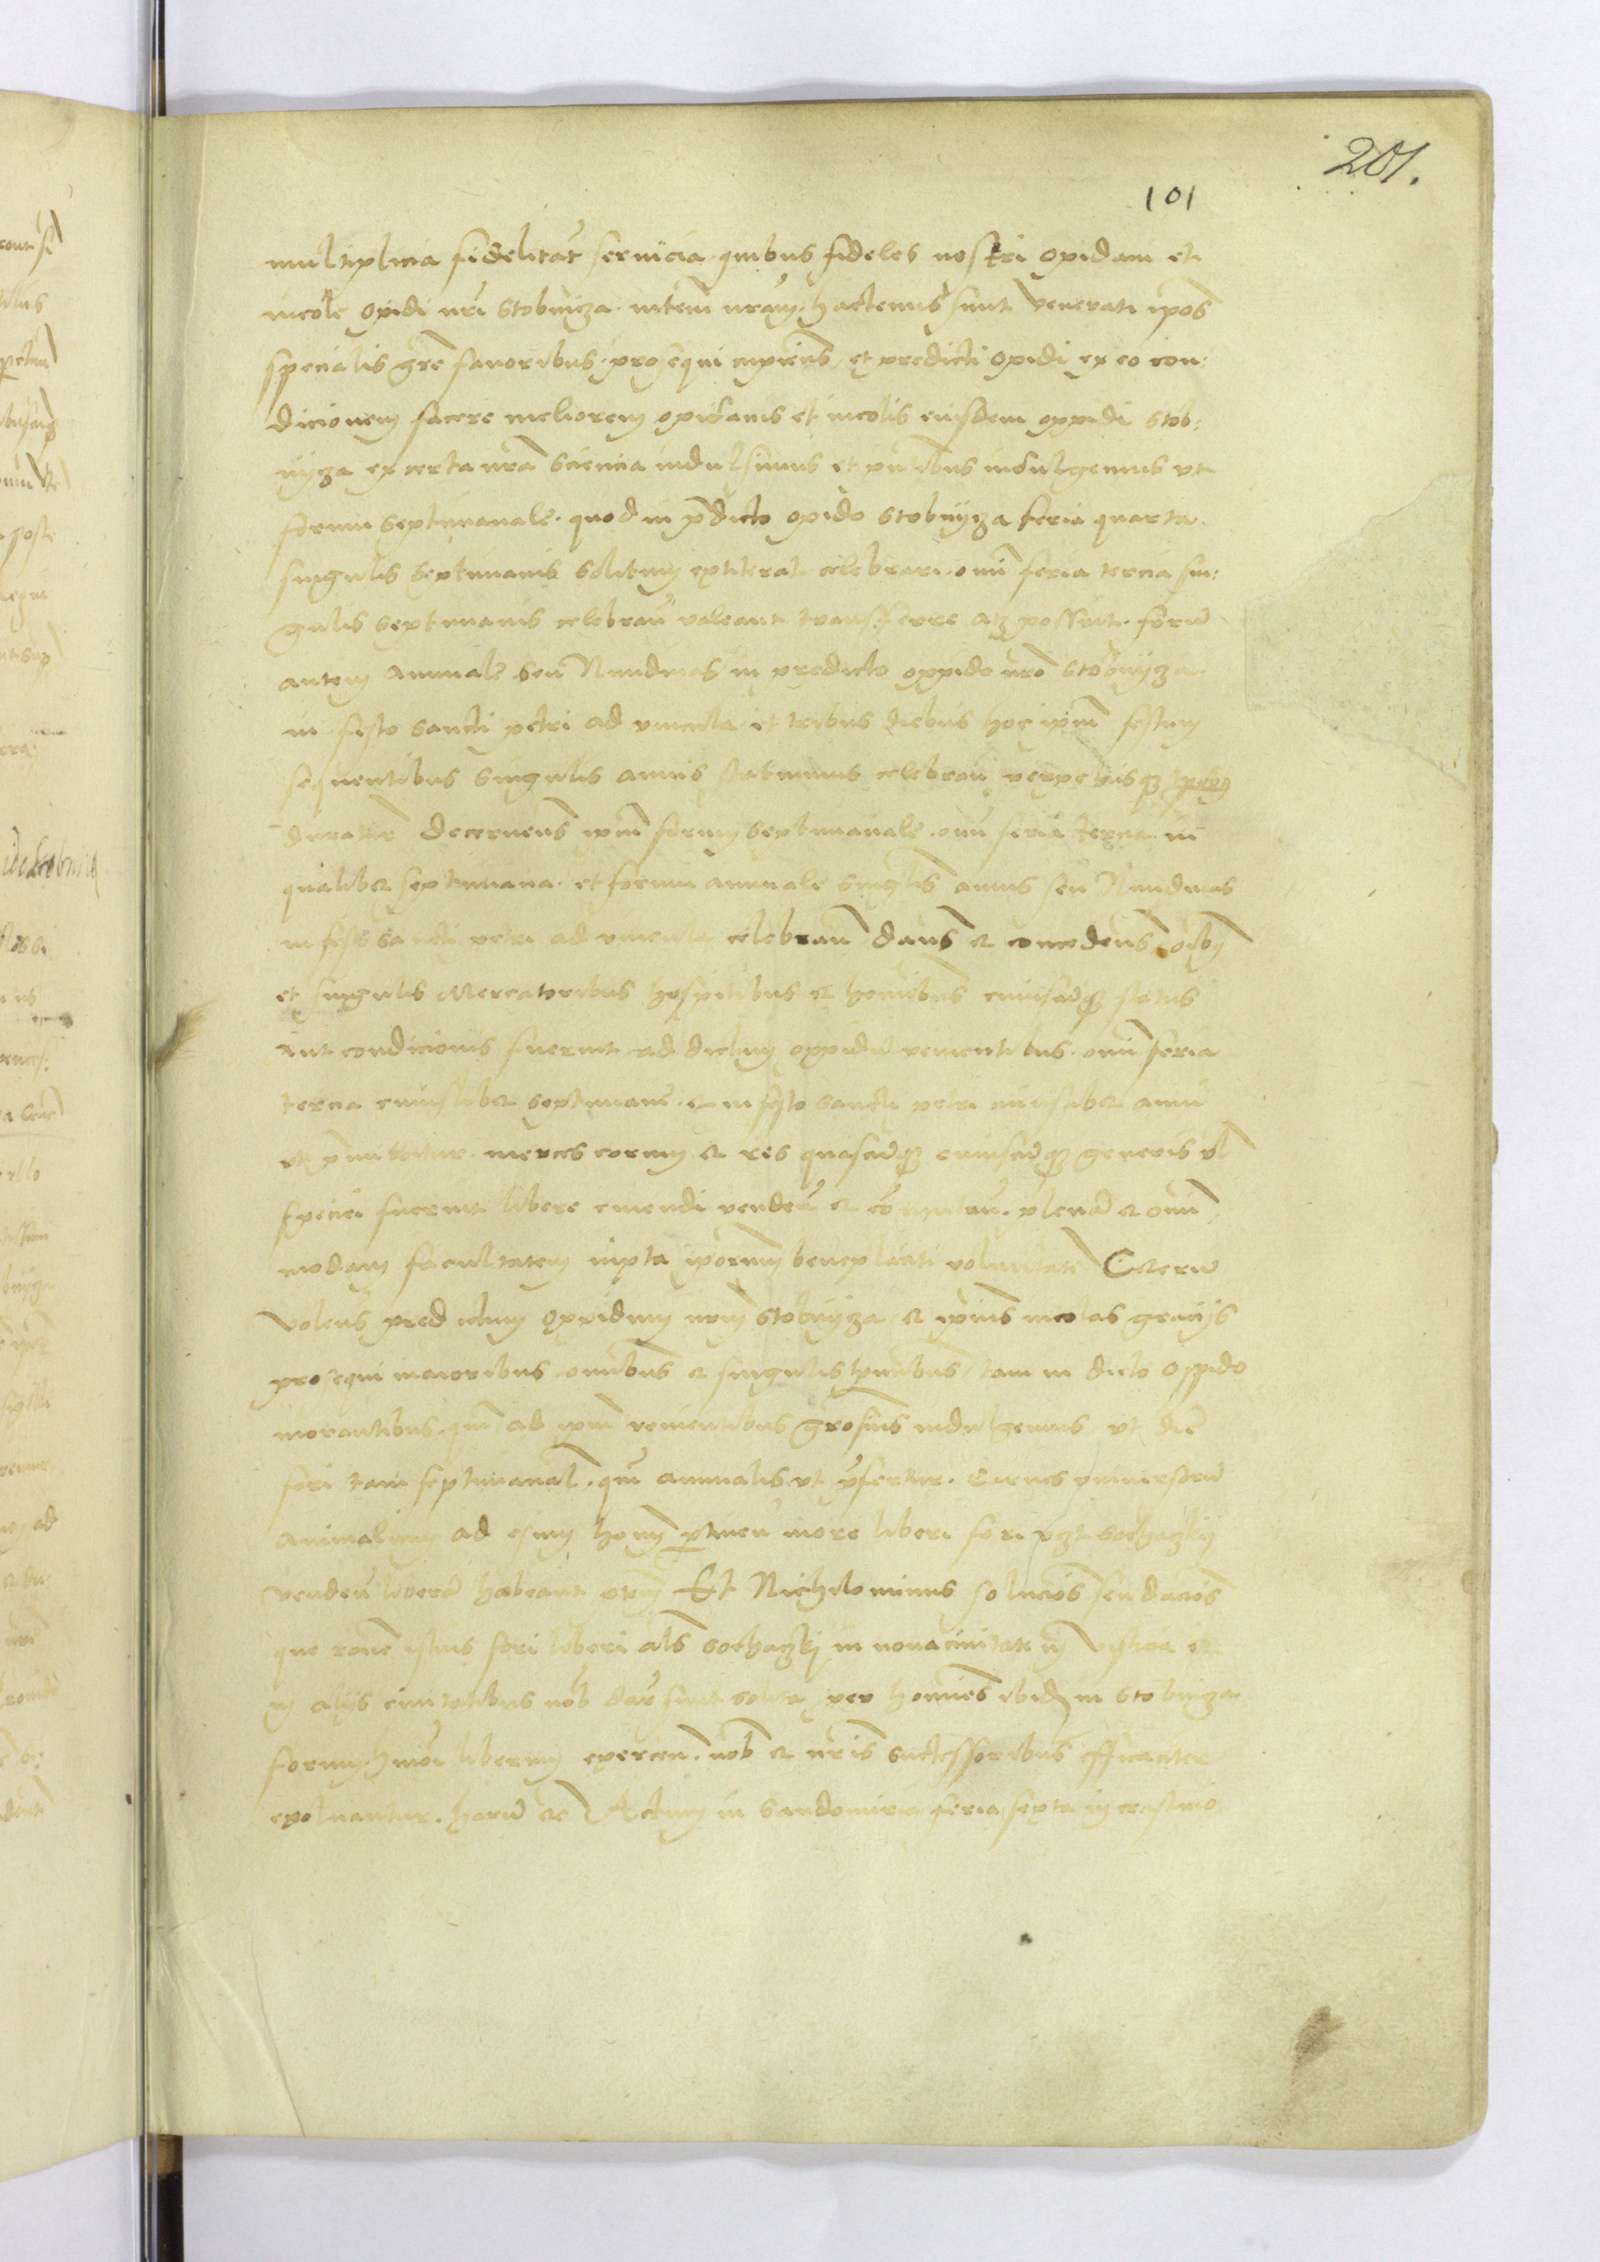 201.
101
multiplicia fidelitat servicia quibus fideles nostri opidani et
incole opidi nri Stobnyza mtem nram hactenus sunt venerati ipos
specialis gre favoribus prosequi cupiens et predicti opidi ex eo con:
dicionem facere meliorem opidanis et incolis eiusdem oppidi Stob:
nyza ex certa nra sciencia indulsimus et pntibus indulgemus ut
forum septimanale quod in pdicto opido Stobnyza feria quarta
singulis septimanis solitum extiterat celebrari omi feria tercia sin:
gulis septimanis celebran valeant transferre atq possint. forum
autem annuale seu Nundinas in predicto oppido nro Stobnyza
in festo sancti petri ad vincula et tribus diebus hoc ipm festum
sequentibus singulis annis statuimus celebran perpetuisq tpibus
duratur decernens ipm forum septimanale omi feria tercia in
qualibet septimana et forum annuale singulis annis seu Nundinas
in festo sancti petri ad vincula celebran dans et concedens oibus
et singulis Mercatoribus hospitibus et hominibus cuiuscumq status
aut condicionis fuerint ad dictum oppidum venientibus omi feria
tercia cuiuslibet septimane et in festo sancti petri cuiuslibet anni
ut pmittitur merces eorum et res quascumq cuiuscumq generis vl
speciei fuerint libere emendi venden et comutan. plenam et omi
modam facultatem iuxta ipsorum beneplaciti voluntatem Ceterum
Volens predictum oppidum nrum Stobnyza et ipius incolas gracijs
prosequi maioribus omnibus et singulis hominibus tam in dicto oppido
morantibus qm ad ipm venientibus grosius indulgemus ut die
fori tam septimanal. qm annualis ut pfertur. Carnes universorum
animalium ad esum homi ptinen more liberi fori vzt sochaczkij
venden liberam habeant ptem Et Nichilominus soluciones seu daciones
que racone istius fori liberi als sochaczkij in nova civitate
in alijs civitatibus nob dari sunt solita per homines ibidem in Stobniza
forum hmoi liberum exercen. nob et nris successoribus efficaciter
exolvantur. harum etc Actum in Sandomiria feria sexta in crastino